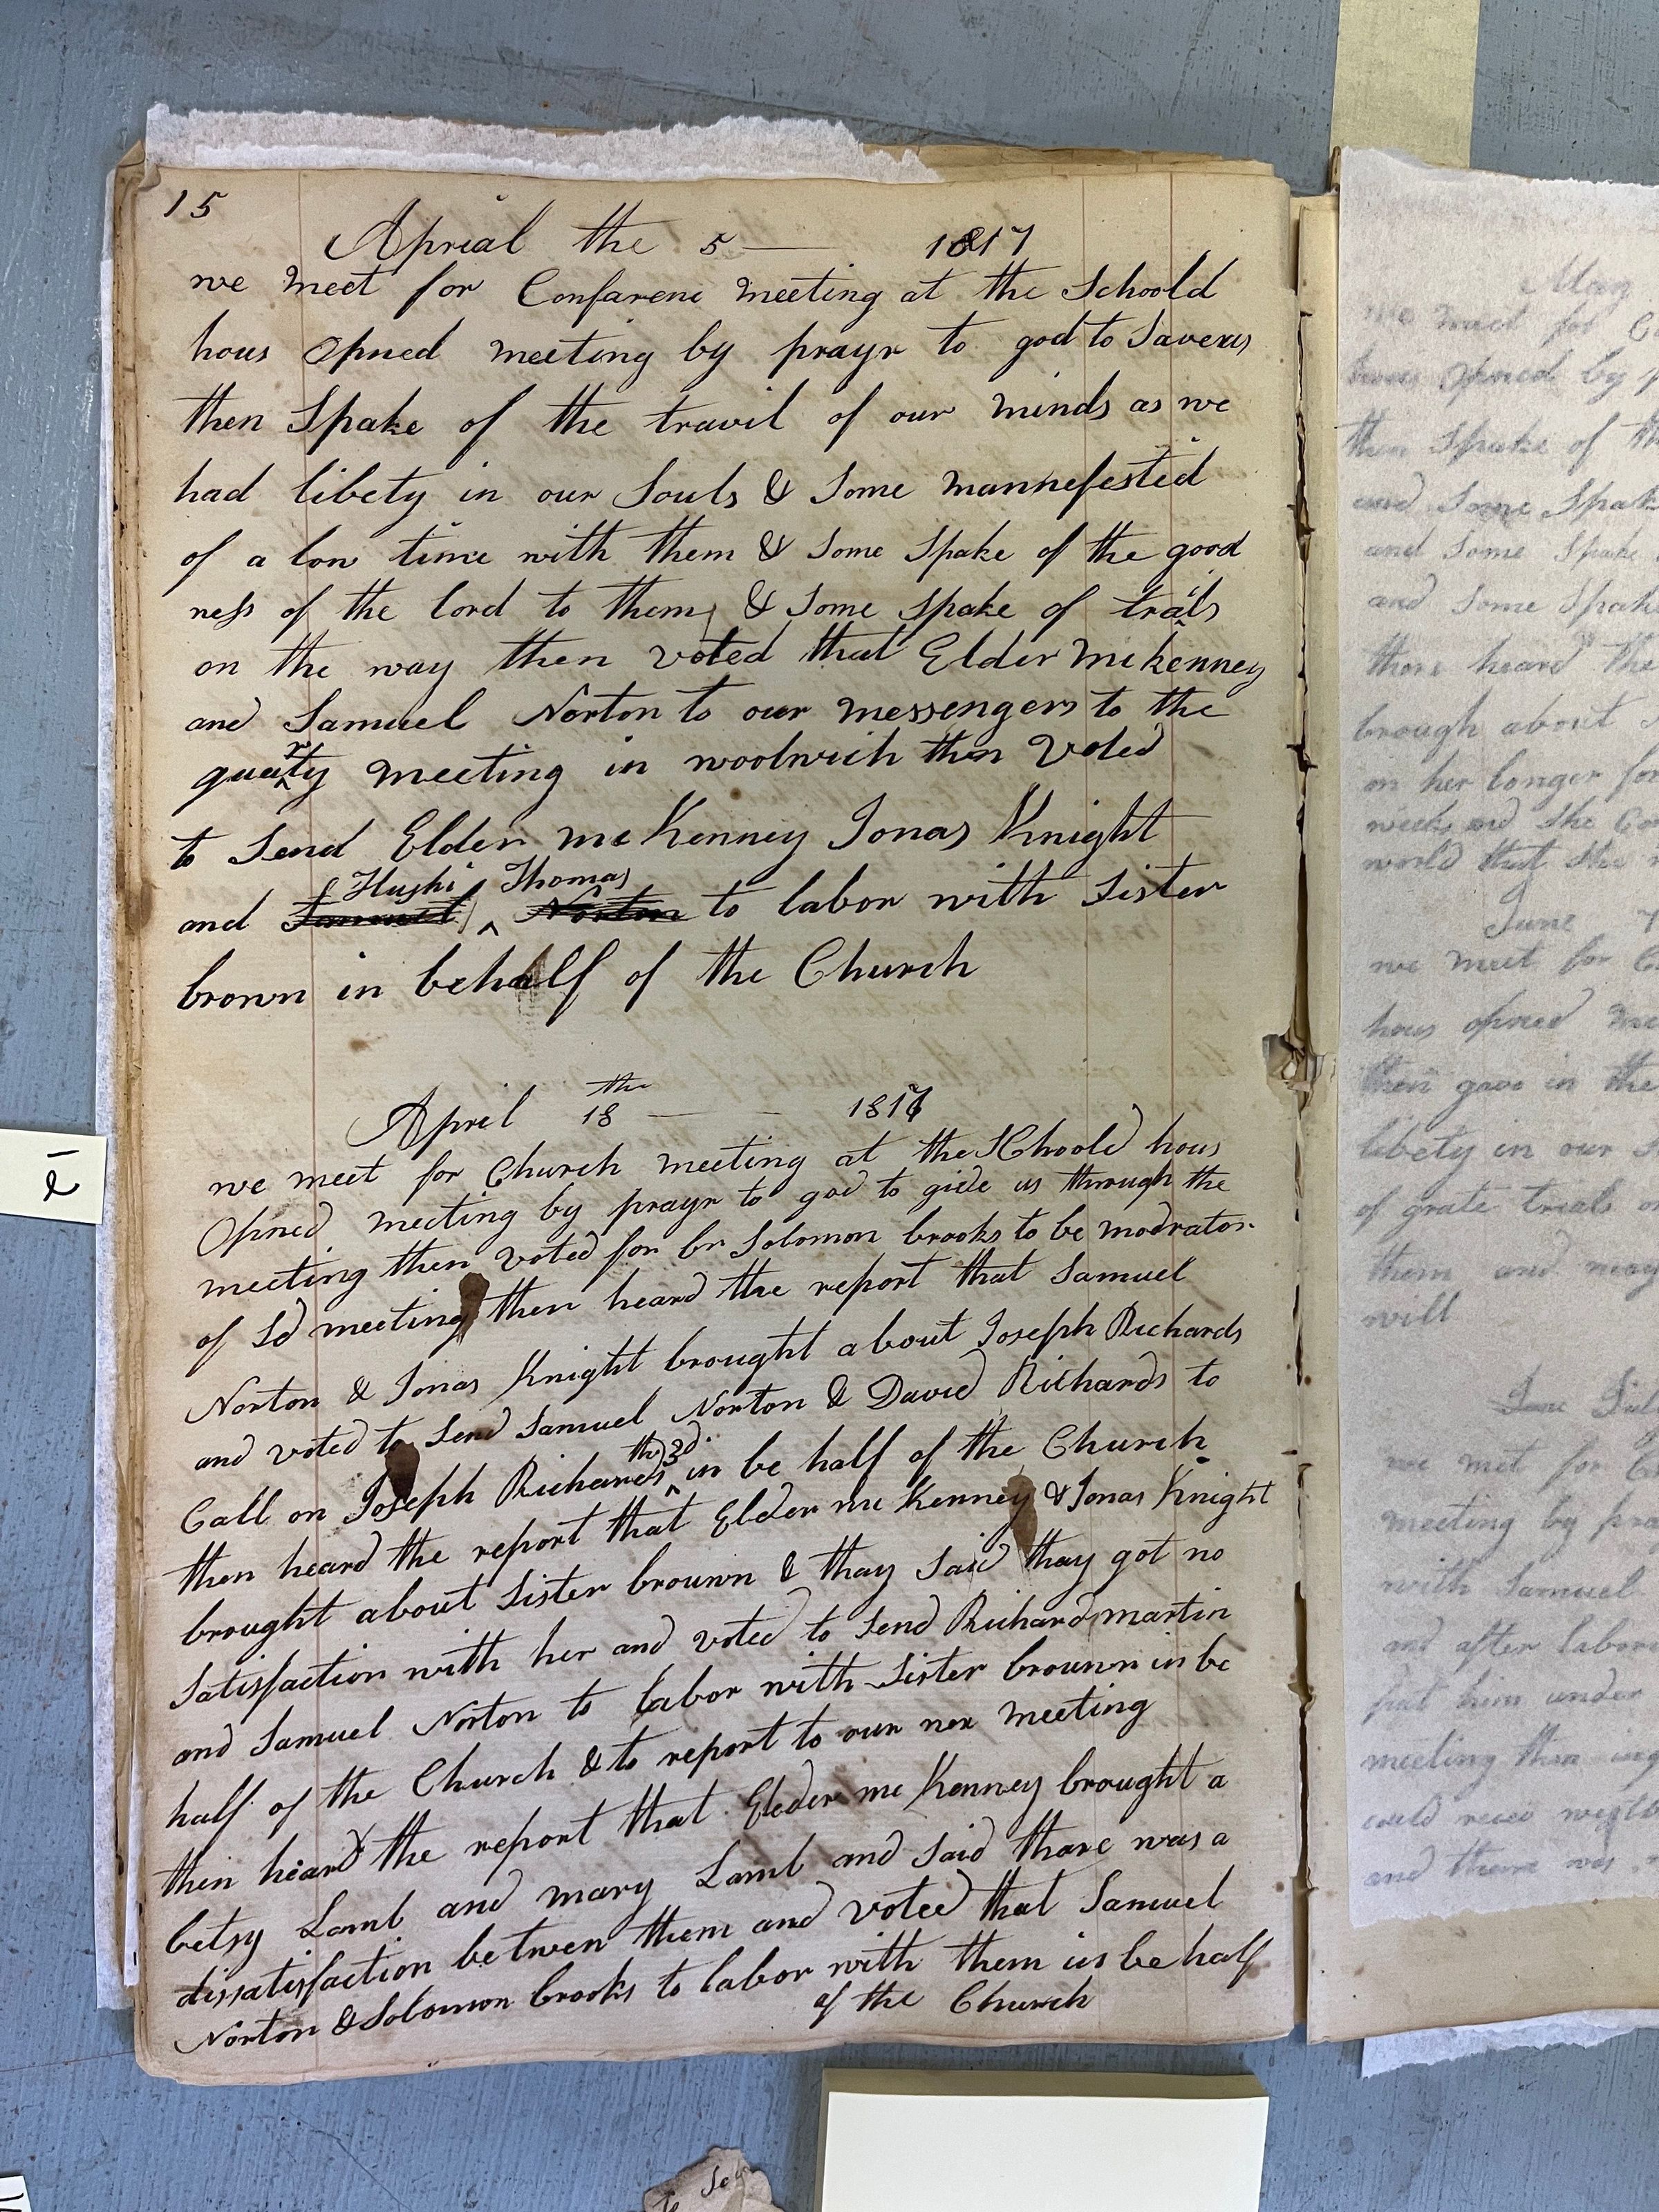 15
Aprial the 5 — 1817
we meet for Confarenc meeting at the Schoold
hous Opned meeting by prayr to god to Saverus
then Spake of the travil of our minds as we
had libety in our Souls & Some mannefested
of a low time with them & Some Spake of the good
ness of the lord to them & Some Spake of trials
on the way then voted that Elder mckenney
and Samuel Norton to our messengers to the
quarty meeting in woolwich then Voted
to Send Elder mc Kenney Jonas Knight
Thomas
and Samuel Norton to labor with Sister
brown in behalf of the Church
April 18th — 1817
we meet for Church meeting at the Schoold hous
Opned meeting by prayr to god to gide us through the
meeting then voted for br Solomon brooks to be modrator
of Sd meeting then heard the report that Samuel
Norton & Jonas Knight brought about Joseph Richards
and voted to Send Samuel Norton & David Richards to
Call on Joseph Richards the 3d in be half of the Church
then heard the report that Elder mc Kenney & Jonas Knight
brought about Sister brounn & thay Said thay got no
Satisfaction with her and voted to Send Richard martin
and Samuel Norton to labor with Sister brounn in be
half of the Church & to report to our nex meeting
then heard the report that Eleder mc Kenney brought a
betsy Lamb and mary Lamb and Said thare was a
dissatisfaction betwen them and voted that Samuel
Norton & Solomon brooks to labor with them in be half
of the Church
May
we meet for
hous Opned by
then Spake of
and Some Spake
and Some Spake
and Some Spake
then heard the
brough about
on her longer for
weeks and She
world that She
June 7
we meet for
hous opned
then gave in the
libety in our
of grate trials
them and may
will
we met for
meeting by
with Samuel
and after
put him under
meeting then
and thare was